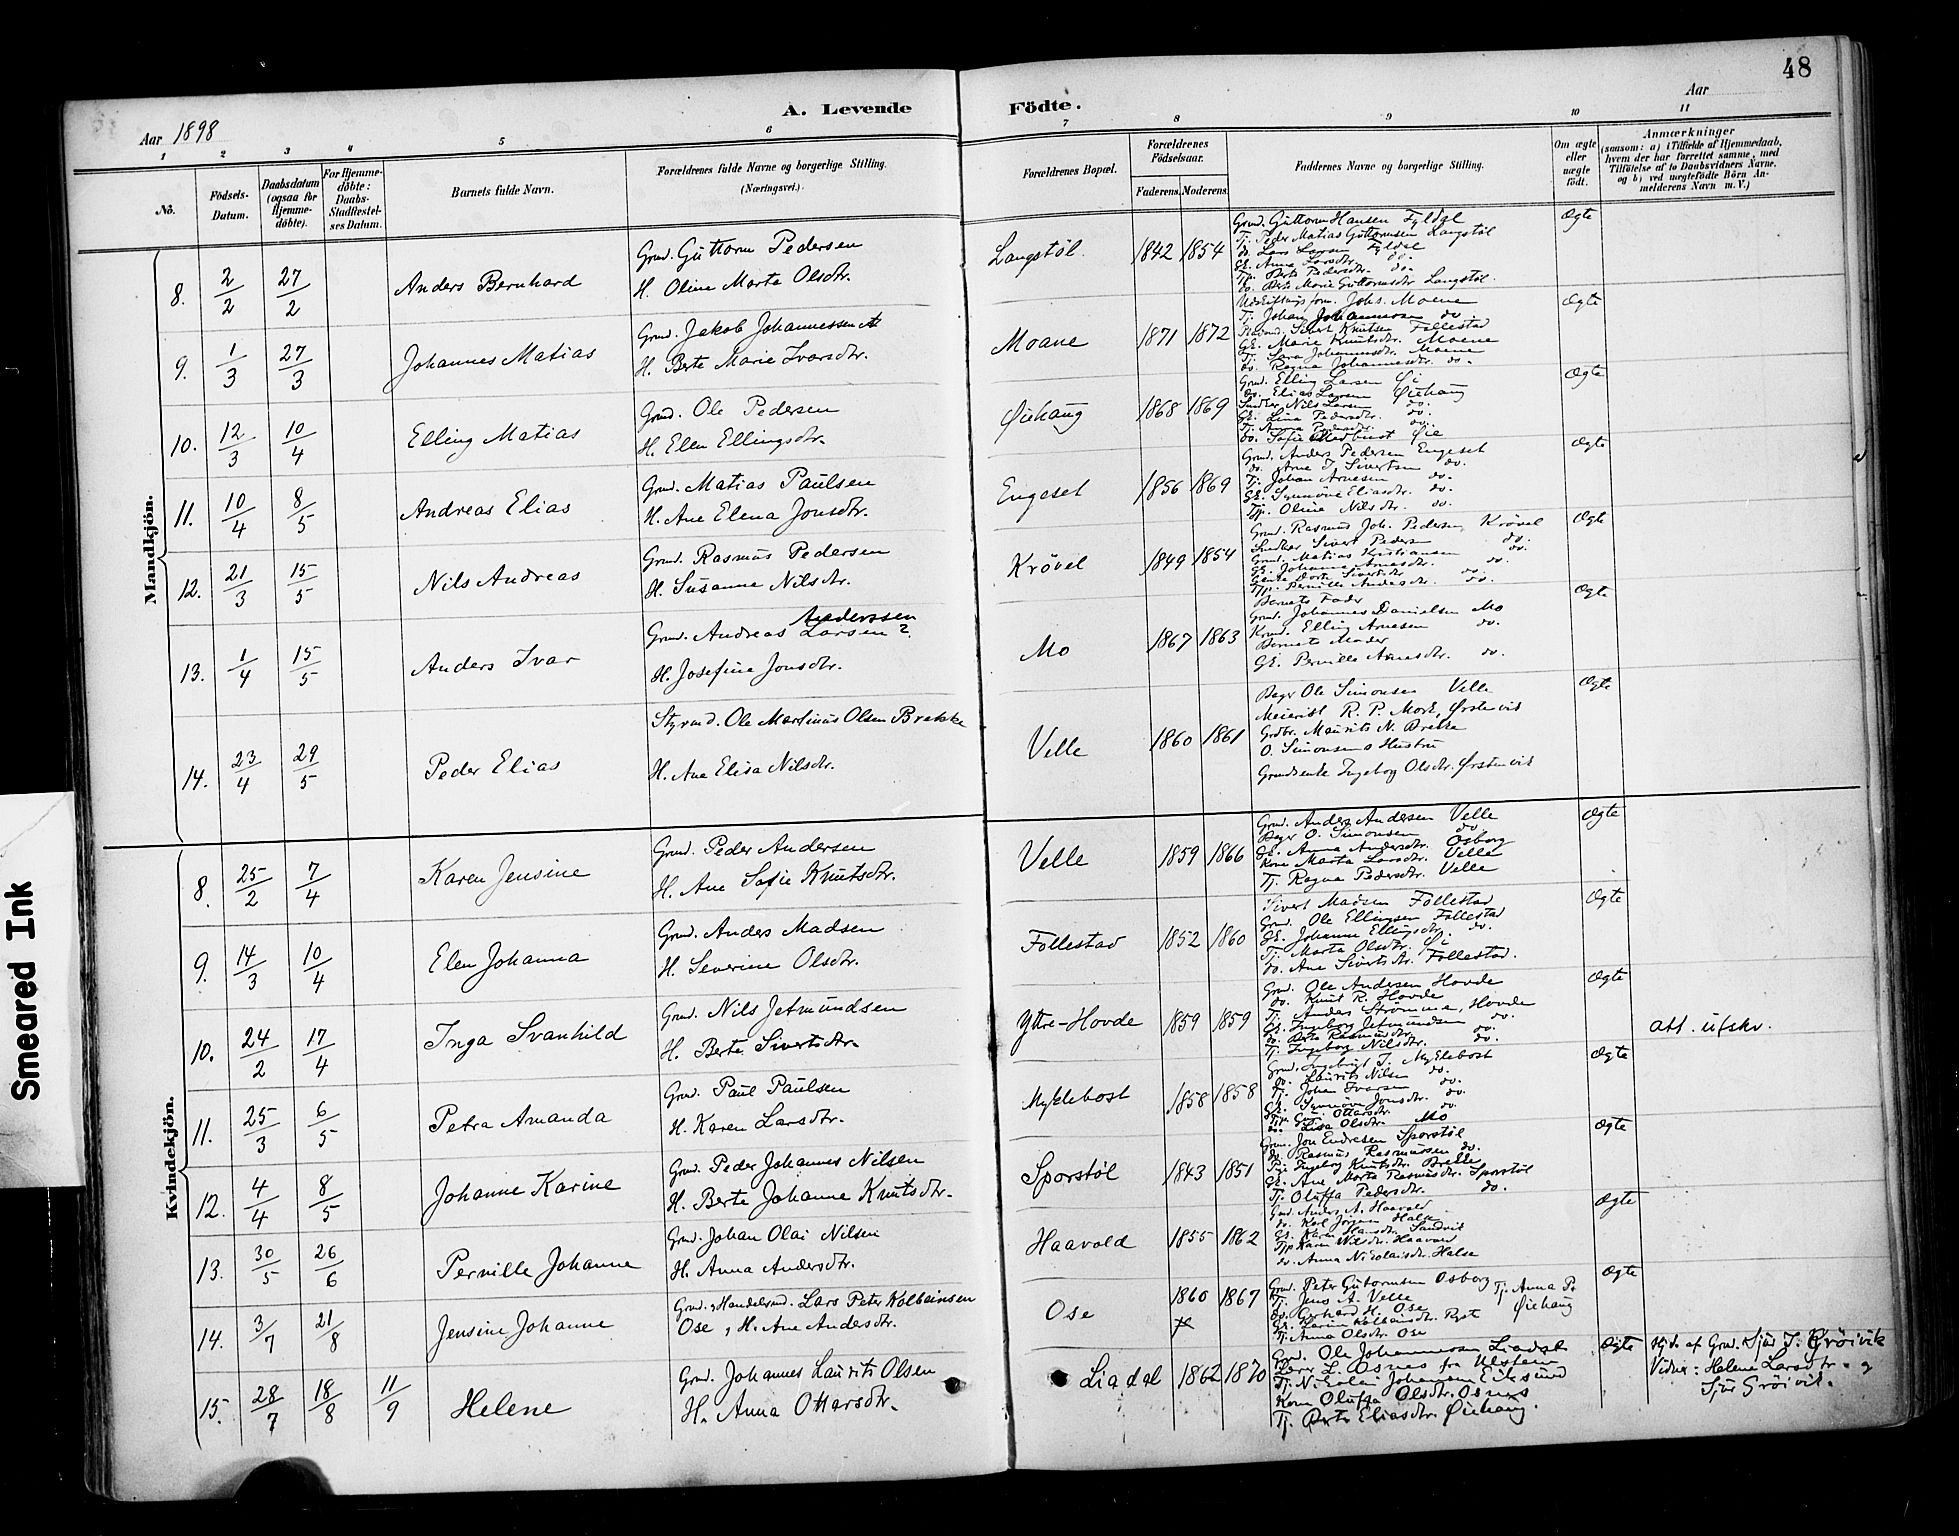 48
A. Levende Födte.
Aar 1898
Aar
1 2 3 4 5 6 7 8 9 10 11
No.
Födsels-Datum.
Daabsdatum (ogsaa for Hjemme-döbte).
For Hjemme-döbte: Daabs-Stadfestel-ses Datum.
Barnets fulde Navn.
Forældrenes fulde Navne og borgerlige Stilling. (Næringsvei).
Forældrenes Bopæl.
Forældrenes Födselsaar.
Faderens. Moderens.
Faddernes Navne og borgerlige Stilling.
Om ægte eller uægte födt.
Anmærkninger
(saasom: a) i Tilfælde af Hjemmedaab, hvem der har forrettet samme, med Tilföielse af to Daabsvidners Navne, og b) ved uægtefödte Börn An-melderens Navn m. V.)
Mandkjön.
8. 2/2 27/2 Anders Bernhard
Grmd. Guttorm Pedersen
H. Oline Marta Olsdtr.
Langstöl. 1842 1854
Grmd. Guttorm Hansen Fyldal
Tj. Peder Matias Guttormsen Langstöl
do. Lars Larsen Fyldal
GK. Anna Larsdtr. do.
Tj. Berte Pedersdtr. do.
do. Berte Marie Guttormsdtr. Langstöl.
Ægte
9. 1/3 27/3 Johannes Matias
Grmd. Jakob Johannessen
H. Berte Marie Ivarsdtr.
Moane 1871 1872
Udskiftnings form. Johs. Moene
Tj. Johan Johannesen do.
Sivert Knutsen Follestad
GK. Marie Knutsdtr. Moene
Tj. Sara Johannesdtr. Moene
do. Ragna Johannesdtr. do.
Ægte
10. 12/3 10/4 Elling Matias
Grmd. Ole Pedersen
H. Elen Ellingsdtr.
Øiehaug 1868 1869
Grmd. Elling Larsen Øi
do. Elias Larsen Øiehaug
Snedker Nils Larsen do.
GK. Lina Pedersdtr. do.
Tj. Anna Pedersdtr. do.
do. Sofie Øie
Ægte
11. 10/4 8/5 Andreas Elias
Grmd. Matias Paulsen
H. Ane Elena Jonsdtr.
Engeset 1856 1869
Grmd. Anders Pedersen Engeset
do. Arne J. Sivertsen do.
Tj. Johan Arnesen do.
GK. Synnöve Eliasdtr. do.
Tjp. Oline Nilsdtr. do.
Ægte
12. 21/3 15/5 Nils Andreas
Grmd. Rasmus Pedersen
H. Susanne Nilsdtr.
Krövel 1849 1854
Grmd. Rasmus Joh. Pedersen, Krövel
Snedker Sivert Pedersen do.
Grmd. Matias Kristiansen do.
GK. Johanne Arnesdtr. do.
Dorte Sivertsdtr. do.
Tjp. Pernille Andersdtr. do.
Ægte
13. 1/4 15/5 Anders Ivar
Anderssen
Grmd. Andreas Larsen?
H. Josefine Jonsdtr.
Mo 1867 1863
Barnets Fader
Grmd. Johannes Danielsen Mo
Krmd. Elling Arnesen do.
Barnets Moder
GK. Pernille Arnesdtr. do.
Ægte
14. 23/4 29/5 Peder Elias
Styrmd. Ole Martinus Olsen Brekke
H. Ane Elisa Nilsdtr.
Velle 1860 1861
Bager Ole Simonsen Velle
Meierist R. P. Mork, Ørstenvik
Grdbr. Maurits N. Brekke
O. Simonsens Hustru
Ingeborg Olsdtr. Ørstenvik
Ægte
Kvindekjön.
8. 25/2 7/4 Karen Jensine
Grmd. Peder Andersen
H. Ane Sofie Knutsdtr.
Velle 1859 1866
Grmd. Anders Andersen Velle
Bager O. Simonsen do.
GK. Anna Andersdtr. Osborg
Kone Marta Larsdtr. Velle
Tj. Ragna Pedersdtr. Velle
Ægte
9. 14/3 10/4 Elen Johanna
Grmd. Anders Madsen
H. Severine Olsdtr.
Follestad 1852 1860
Sivert Madsen Follestad
Grmd. Ole Ellingsen Follestad
GK. Johanne Ellingsdtr. do.
Tj. Marta Olsdtr. Øi
do. Ane Sivertsdtr. Follestad.
Ægte
10. 24/2 17/4 Inga Svanhild
Grmd. Nils Jetmundsen
H. Berte Sivertsdtr.
Yttre-Hovde 1859 1859
Grmd. Ole Andersen Hovde
do. Knut R. Hovde
Tj. Anders Strömme, Hovde
GK. Ingeborg Jetmundsen do.
do. Berte Rasmusdtr. do.
Tj. Ingeborg Nilsdtr. do.
Ægte
att. utskr.
11. 25/3 6/5 Petra Amanda
Grmd. Paul Paulsen
H. Karen Larsdtr.
Myklebost 1858 1858
Grmd. Ingebrigt J. Myklebost
do. Laurits Nilsen do.
Tj. Johan Ivarsen do.
GK. Synnöve Jonsdtr. do.
Tjp. Guri Ottarsdtr. do.
do. Lisa Olsdtr. Mo
Ægte
12. 4/4 8/5 Johanne Karine
Grmd. Peder Johannes Nilsen
H. Berte Johanne Knutsdtr.
Sporstöl 1843 1851
Grmd. Jon Endresen Sporstöl
do. Rasmus Rasmussen do.
Ingeborg Knutsdtr. Brekke
GK. Ane Marta Rasmusdtr. Sporstöl
Tj. Oluffa Pedersdtr. do.
Ægte
13. 30/5 26/6 Pernille Johanne
Grmd. Johan Olai Nilsen
H. Anna Andersdtr.
Haavold 1855 1862
Grmd. Anders A. Haavold
do. Karl Jörgen Halse
GK. Karen Hansdtr. Sandvik
Tjp. Karen Nilsdtr. Haavold
do. Anna Nicolaisdtr. Halse
Ægte
14. 3/7 21/8 Jensine Johanne
Grmd. & Handelsmd. Lars Peter Kolbeinsen
Ose, H. Ane Andersdtr.
Ose 1860 1867
Grmd. Peter Guttormsen Osborg
Tj. Jens A. Velle
do. Gerhard H. Ose
GK. Karine Kolbeinsdtr. Ryst
Tj. Anna Olsdtr. Ose
Tj. Anna P. Øiehaug
Ægte
15. 28/7 18/8 11/9 Helene
Grmd. Johannes Laurits Olsen
H. Anna Ottarsdtr.
Liadal 1862 1870
Grmd. Ole Johannessen Liadal
L. Osnes fra Ulstein
Tj. Nikolai Johansen Eiksund
Kone Oluffa Olsdtr. Osnes
Tj. Berte Eliasdtr. Øiehaug.
Ægte
Hjd. af Grmd. Sjur J. Gröivik
Vidner: Helene Larsdtr. og
Sjur Gröivik.
Smeared Ink